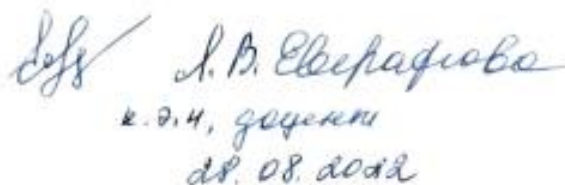 Л. В. Евграфова
к.э.н, доцент
28.08.2022